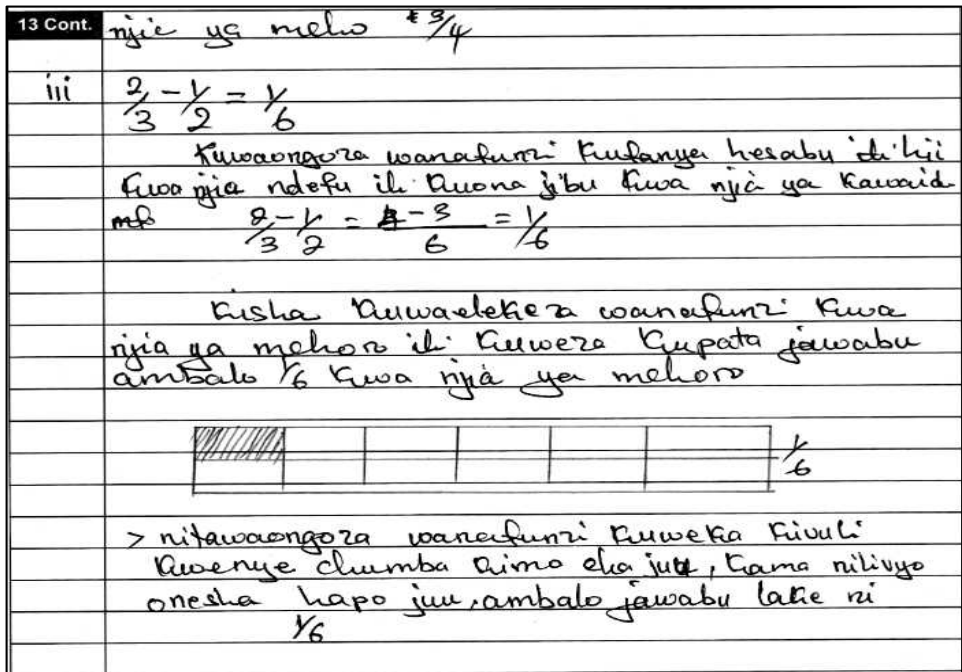 13 Cont. njie ya melio 3/4
iii 2/3 - 1/2 = 1/6
Kuwaongoza wanafunzi Kufanya hesabu hii
Kwa njia ndefu ili Kuona jibu Kwa njia ya Kawaid
mf 2/3 - 1/2 = 4 - 3 / 6 = 1/6
Kisha Kuwaelekeza wanafunzi Kwa
njia ya mchoro ili Kuweza Kupata jawabu
ambalo 1/6 Kwa njia ya mchoro
1/6
> nitawaongoza wanafunzi Kuweka Kivuli
Kwenye chumba Kimo cha juu, Kama nilivyo
onesha hapo juu, ambalo jawabu lake ni
1/6